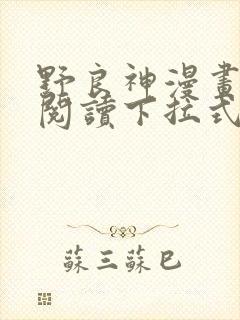 野良神漫畫
閱讀下拉式
蘇三蘇已